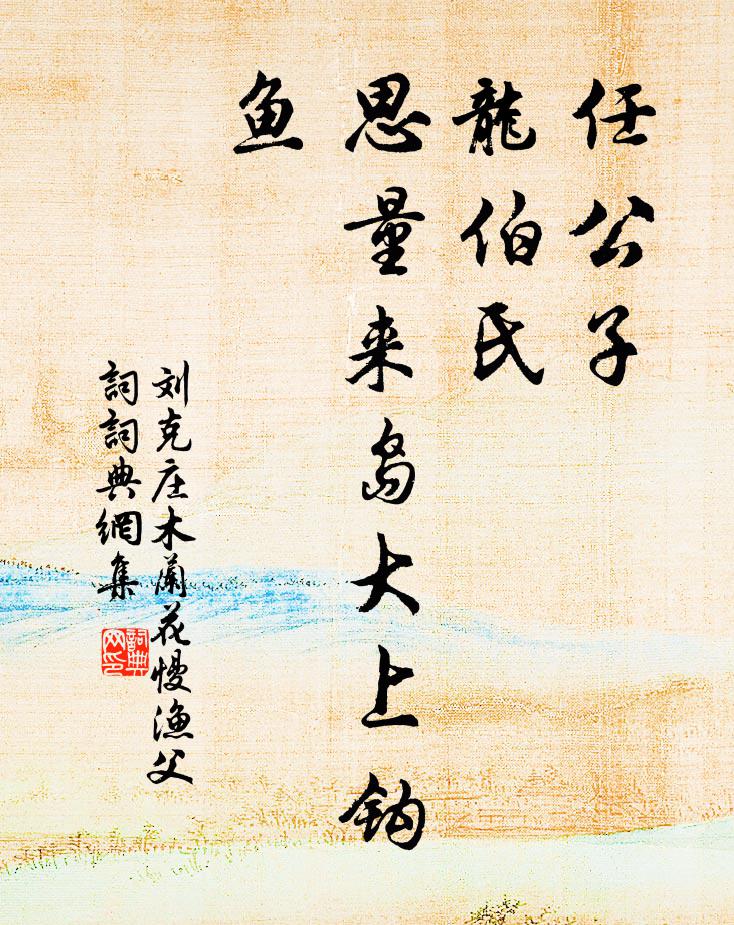 任公子
龍伯氏
思量来岛大上鈎
鱼
刘克庄木蘭花慢渔父
詞詞典網集
詞典网印